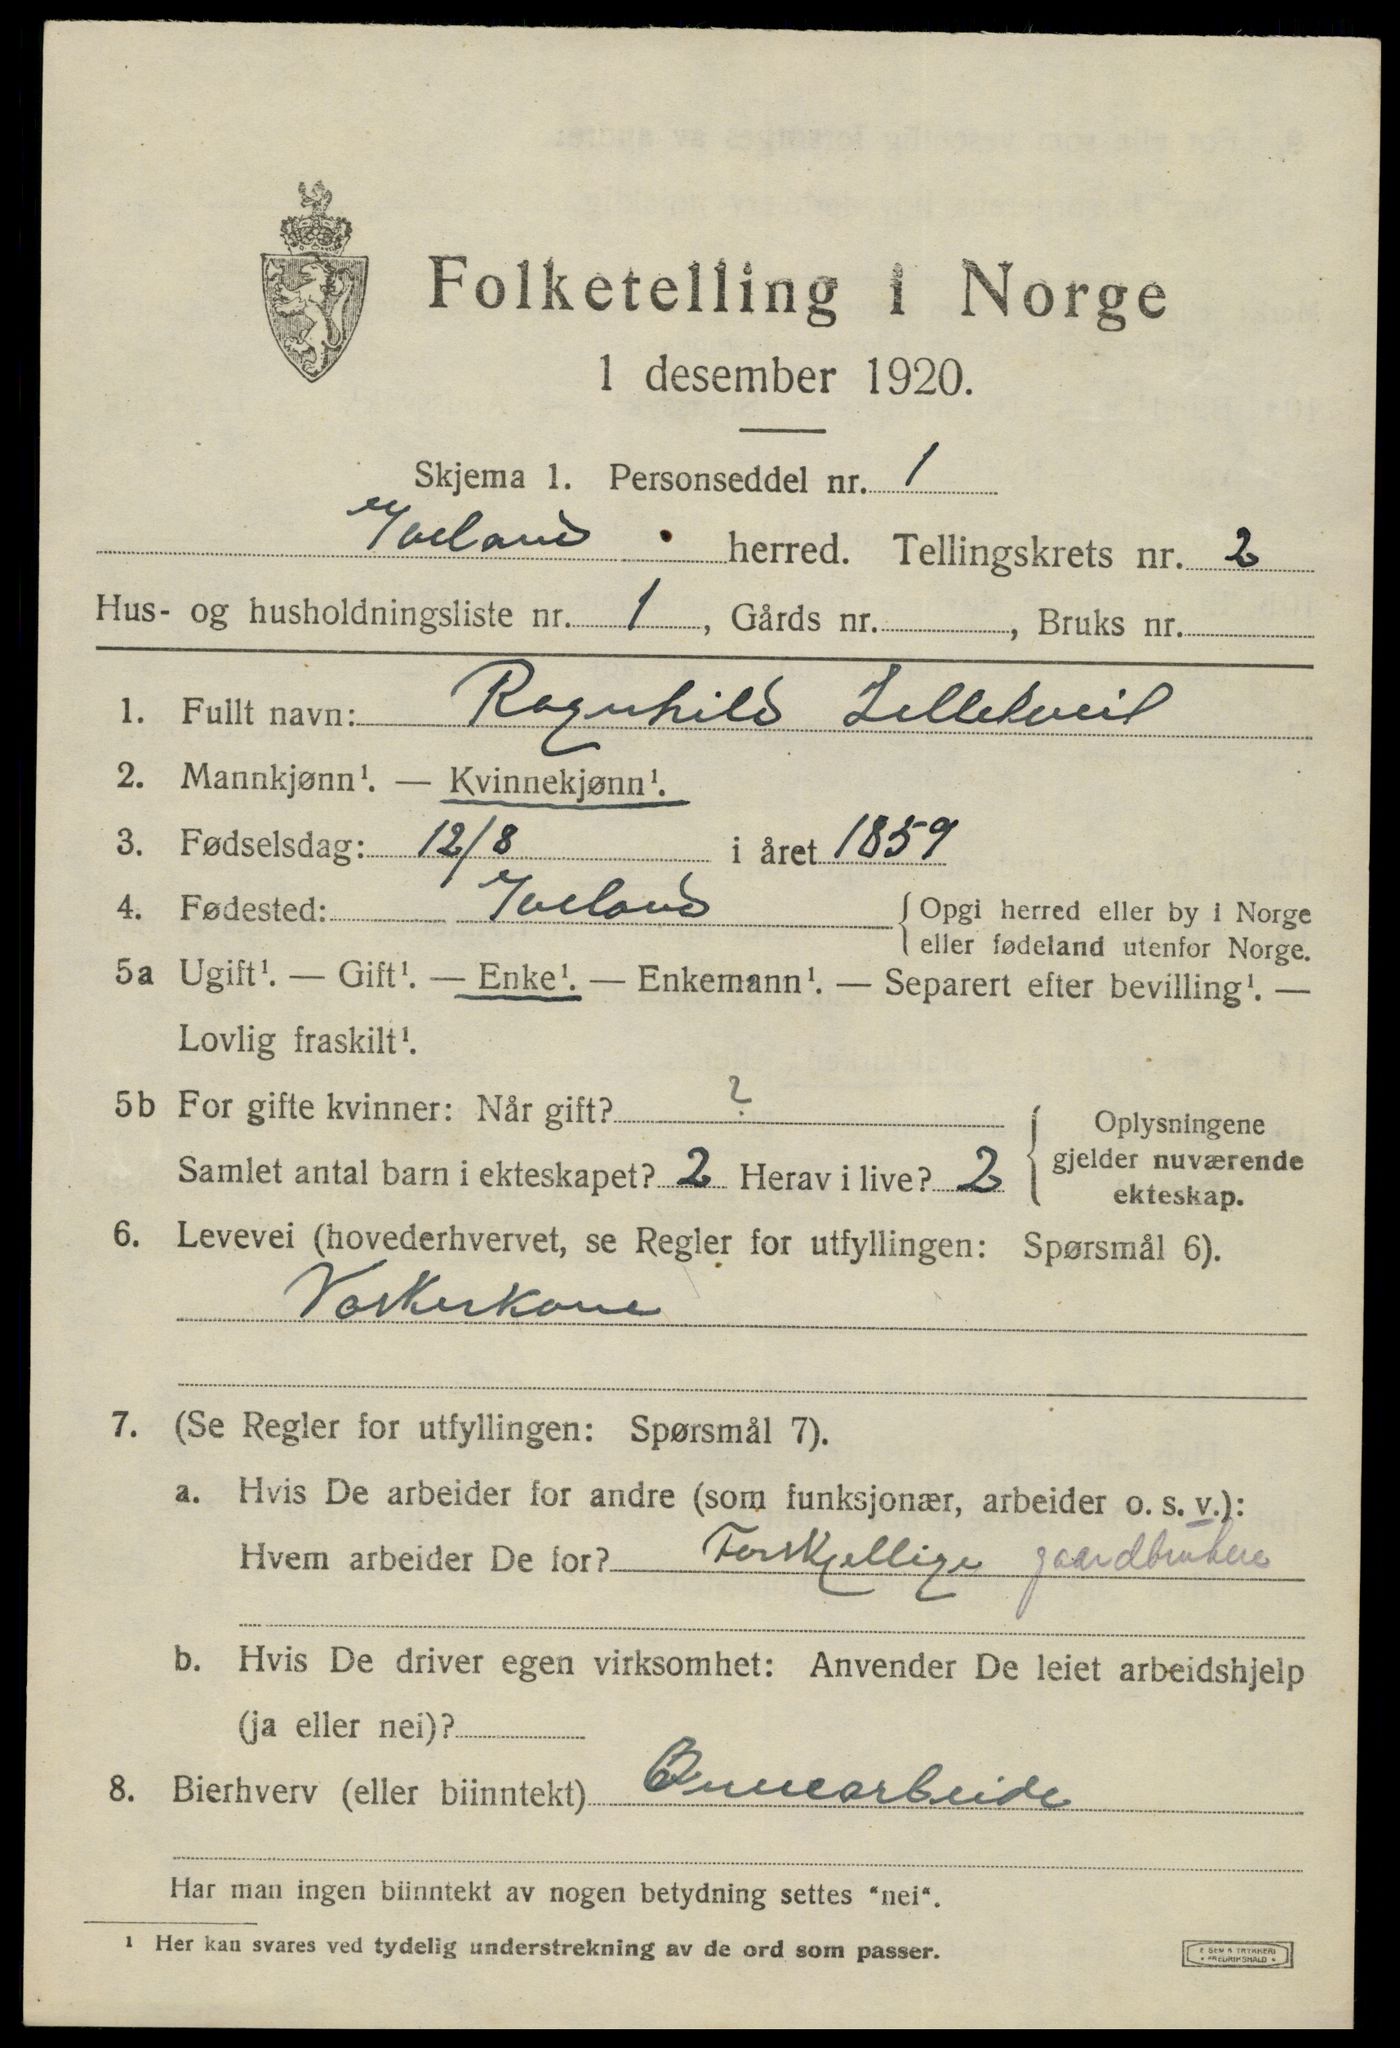 Folketelling i Norge
1 desember 1920.
Skjema 1. Personseddel nr. 1
Iveland herred. Tellingskrets nr. 2
Hus- og husholdningsliste nr. 1, Gårds nr. , Bruks nr.
1. Fullt navn: Ragnhild
2. Mannkjønn¹. — Kvinnekjønn¹.
3. Fødselsdag: 12/8 i året 1859
4. Fødested: Iveland { Opgi herred eller by i Norge
eller fødeland utenfor Norge.
5a Ugift¹. — Gift¹. — Enke¹. — Enkemann¹. — Separert efter bevilling¹. —
Lovlig fraskilt¹.
5b For gifte kvinner: Når gift? ?
Samlet antal barn i ekteskapet? 2 Herav i live? 2
{ Oplysningene
gjelder nuværende
ekteskap.
6. Levevei (hovederhvervet, se Regler for utfyllingen: Spørsmål 6).
Vaskerkone
7. (Se Regler for utfyllingen: Spørsmål 7).
a. Hvis De arbeider for andre (som funksjonær, arbeider o. s. v.):
Hvem arbeider De for? Forskjellige gaardbrukere
b. Hvis De driver egen virksomhet: Anvender De leiet arbeidshjelp
(ja eller nei)?
8. Bierhverv (eller biinntekt) Onnearbeide
Har man ingen biinntekt av nogen betydning settes "nei".
¹ Her kan svares ved tydelig understrekning av de ord som passer.